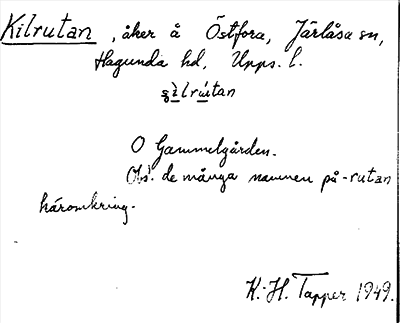 Kilrutan, åker å Östfora, Järlåsa sn,
Hagunda hd, Upps. l.
O Gammelgården.
Obs. de många namnen på -rutan
häromkring.
K.-H. Tapper 1949.